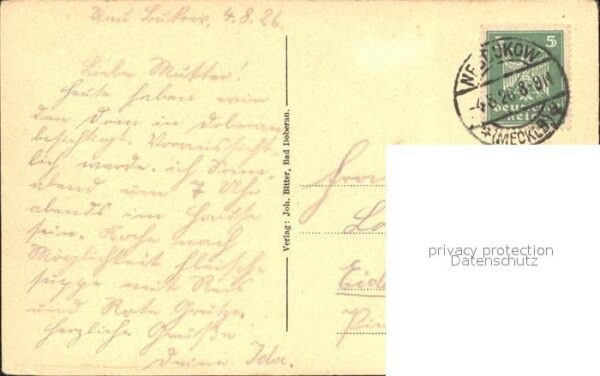 Neu Bukow, 4.8.26.
Liebe Mutter!
Heute haben wir
den Dom in Doberan
besichtigt. Voraussicht-
lich werde ich Sonn-
abend um 7 Uhr
abends im Hause
sein. Koche nach
Möglichkeit Fleisch-
suppe mit Reis
und Rote Grütze.
Herzliche Grüße
Deine Ida.
Verlag: Joh. Bitter, Bad Doberan.
5
NEUBUKOW
-4.8.26.8-9V.
(MECKLB)
Frau
privacy protection
Datenschutz